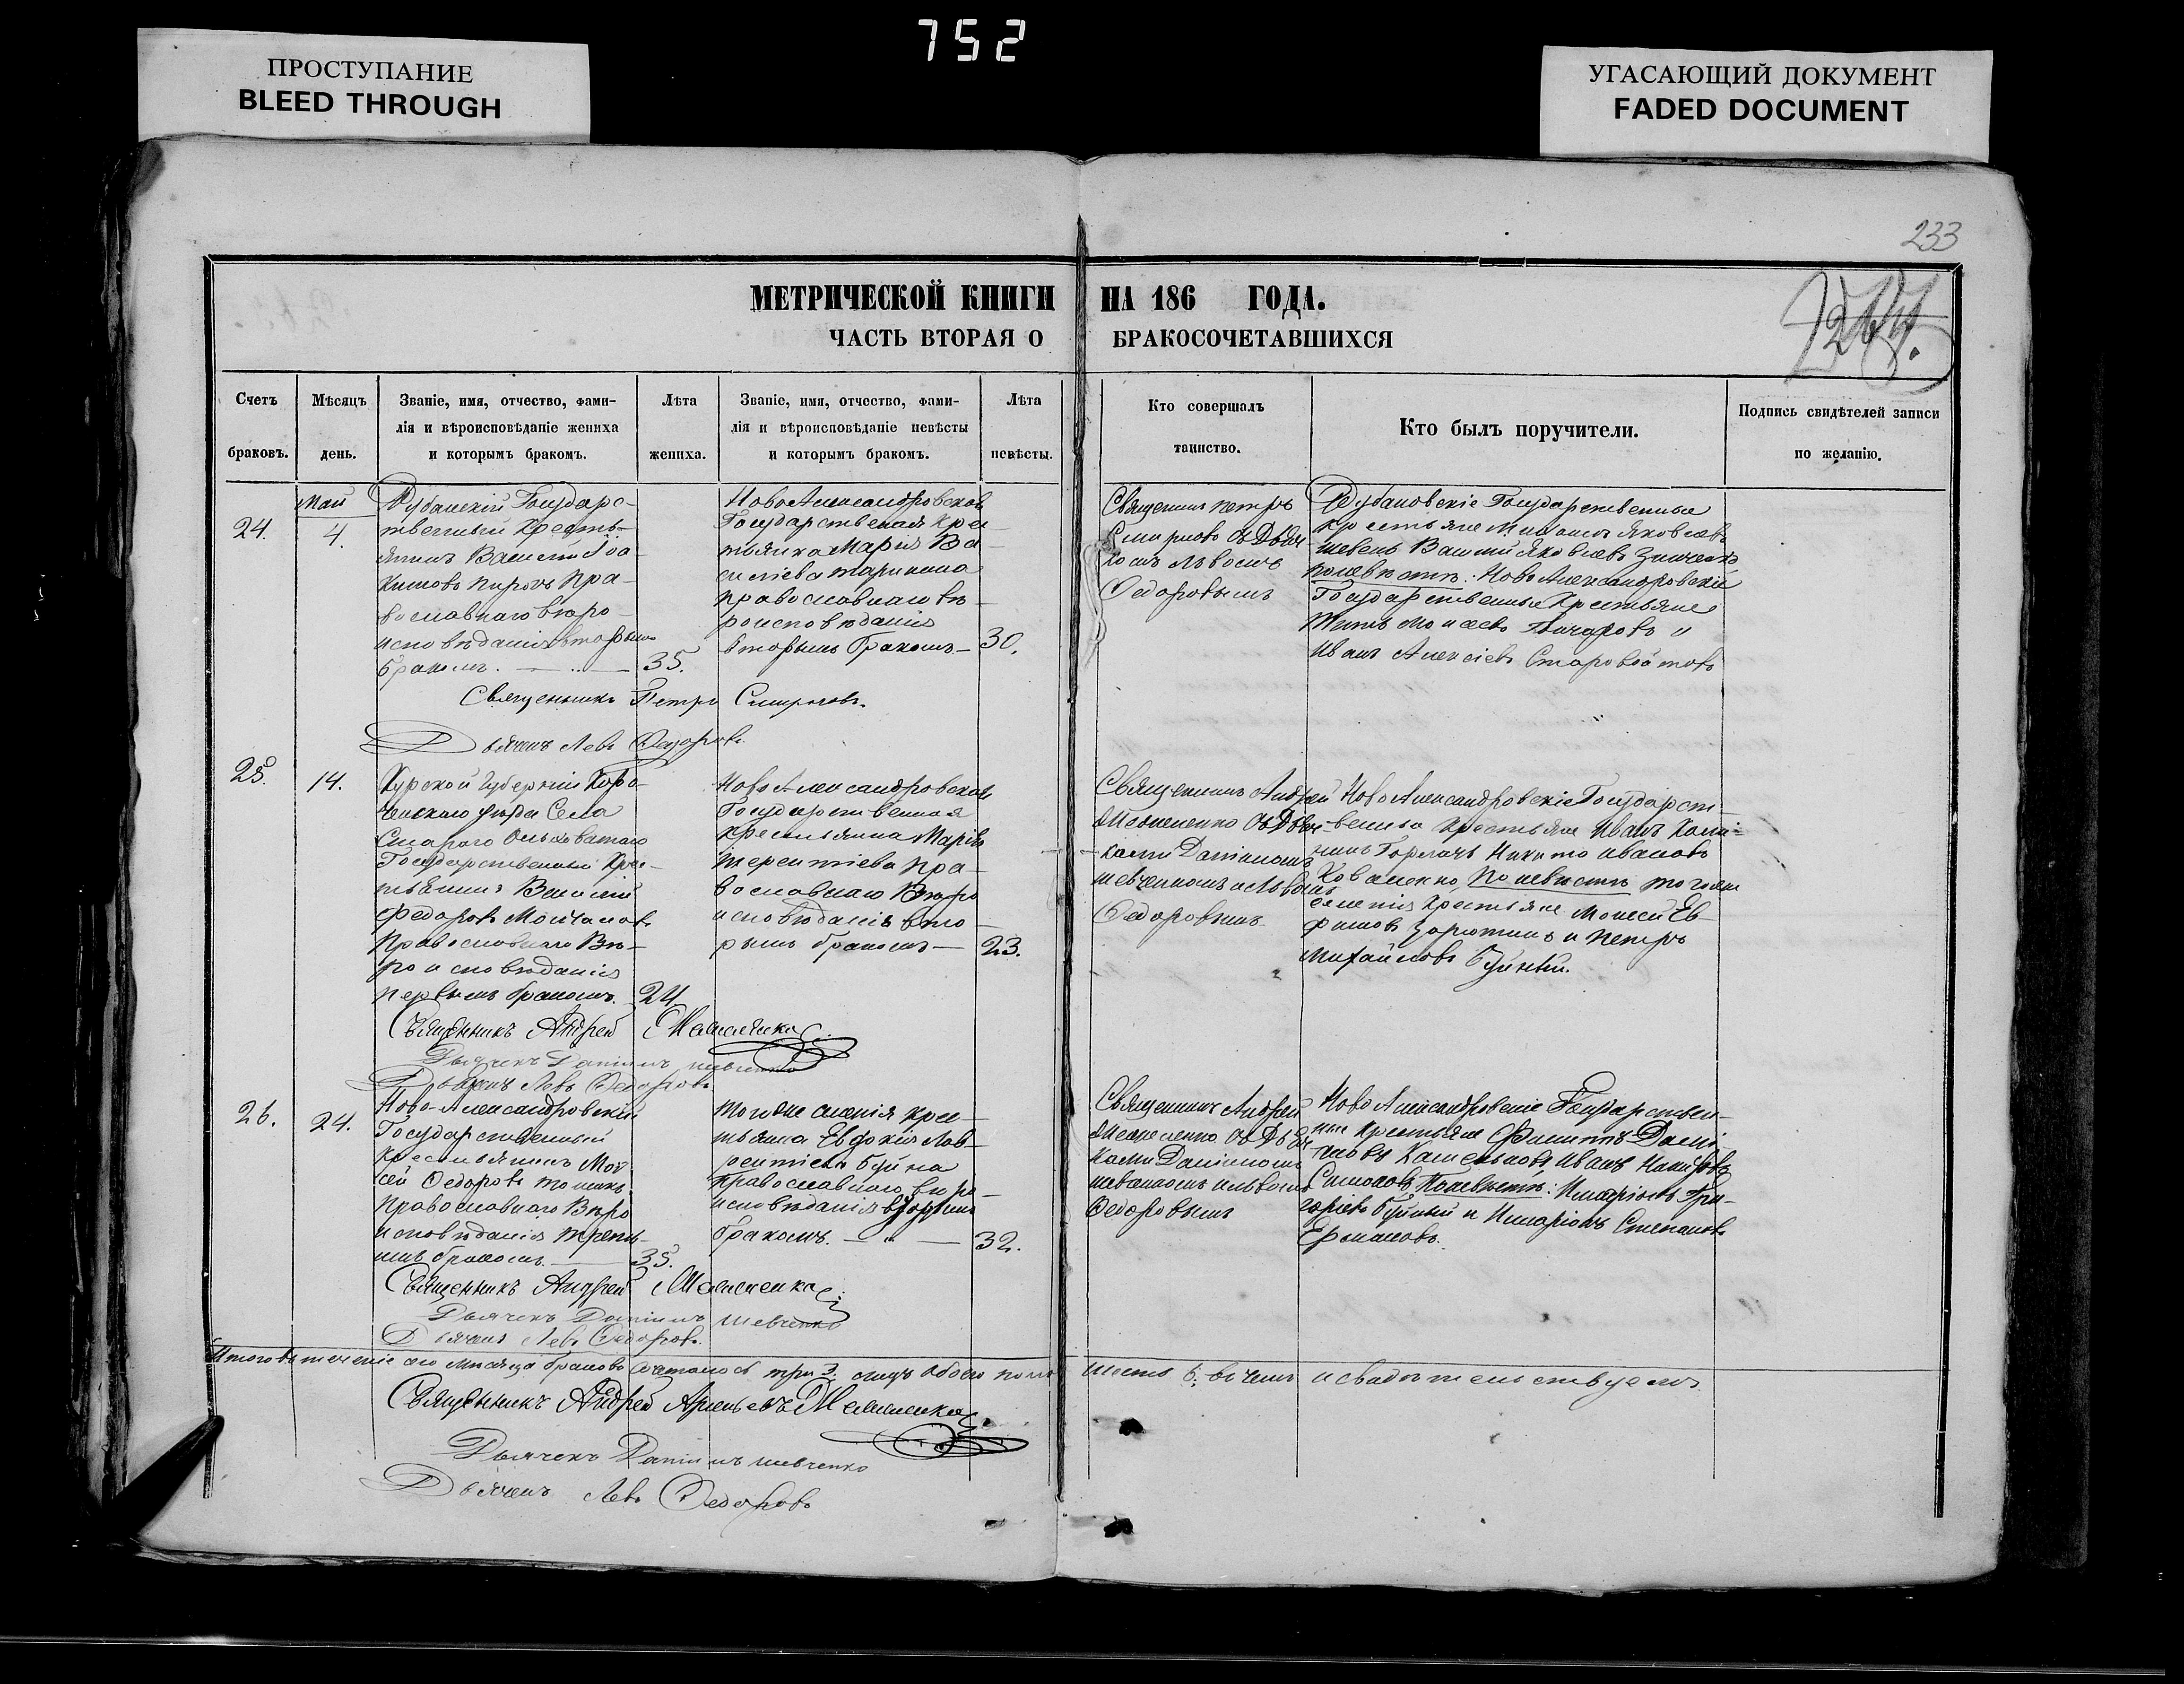 752
ПРОСТУПАНИЕ
BLEED THROUGH
УГАСАЮЩИЙ ДОКУМЕНТ
FADED DOCUMENT
233
МЕТРИЧЕСКОЙ КНИГИ НА 186 ГОДА.
ЧАСТЬ ВТОРАЯ О БРАКОСОЧЕТАВШИХСЯ
Счетъ
браковъ.
Мѣсяцъ
день.
Званіе, имя, отчество, фами-
лія и вѣроисповѣданіе жениха
и которымъ бракомъ.
Лѣта
жениха.
Званіе, имя, отчество, фами-
лія и вѣроисповѣданіе невѣсты
и которымъ бракомъ.
Лѣта
невѣсты.
Кто совершалъ
таинство.
Кто былъ поручители.
Подпись свидѣтелей записи
по желанію.
24.
Май
4.
Государс-
твенный Кресть-
янинъ Василій
Пра-
вославнаго вѣро-
исповѣданія вторымъ
бракомъ. 35.
НовоАлександровская
Государственная крес-
тьянка Марія Ва-
силіева
православнаго вѣ-
роисповѣданія
вторымъ бракомъ 30.
Священникъ Петръ
Смирновъ съ Дьяч-
комъ Львомъ
Федоровымъ
Государственные
крестьяне Яковлевъ
Василій Яковлевъ
по невѣстѣ: НовоАлександровскіе
Государственные Крестьяне
Титъ Моисеевъ Гончаровъ и
Иванъ Алексѣевъ Старовойтовъ
Священникъ Петръ Смирновъ.
Дьячекъ Левъ Федоровъ
25.
14.
Курской Губерніи Коро-
чанскаго уѣзда Села
Стараго
Государственный Крес-
тьянинъ Василій
Федоровъ Молчановъ
Православнаго Вѣ-
роисповѣданія
первымъ бракомъ. 24.
НовоАлександровская
Государственная
крестьянка Марія
Терентіева пра-
вославнаго Вѣро
исповѣданія вто-
рымъ бракомъ 23.
Священникъ Андрей
съ Дьяч-
ками Даніиломъ
Шевченкомъ и Львомъ
Федоровымъ
НовоАлександровскіе Государст-
венные крестьяне Иванъ
Никита Ивановъ
Коваленко, по невѣстѣ того же
селенія крестьяне Моисей Ев-
фимовъ и Петръ
Михайловъ Буйный.
Священникъ Андрей
Дьячекъ Даніилъ Шевченко
Дьячекъ Левъ Федоровъ
26.
24.
Ново-Александровскій
Государственный
Крестьянинъ Мои-
сей Федоровъ
Православнаго Вѣро
исповѣданія треть-
имъ бракомъ. 35.
Того же селенія крес-
тьянка Евдокія Лав-
рентіева Буйна
православнаго вѣро-
исповѣданія вторымъ
бракомъ. 32.
Священникъ Андрей
съ Дьяч-
ками Даніиломъ
и Львомъ
Федоровымъ
НовоАлександровскіе Государствен-
ные крестьяне Филиппъ
Иванъ
по невѣстѣ: Иларіонъ Гри-
горіевъ Буйный и Иларіонъ Степановъ
Священникъ Андрей
Дьячекъ Даніилъ Шевченко
Дьячекъ Левъ Федоровъ.
Итого въ теченіе сего мѣсяца браковъ три 3. лицъ обоего пола шесть 6. въ чемъ и свидѣтельствуемъ
Священникъ Андрей
Дьячекъ Даніилъ Шевченко
Дьячекъ Левъ Федоровъ